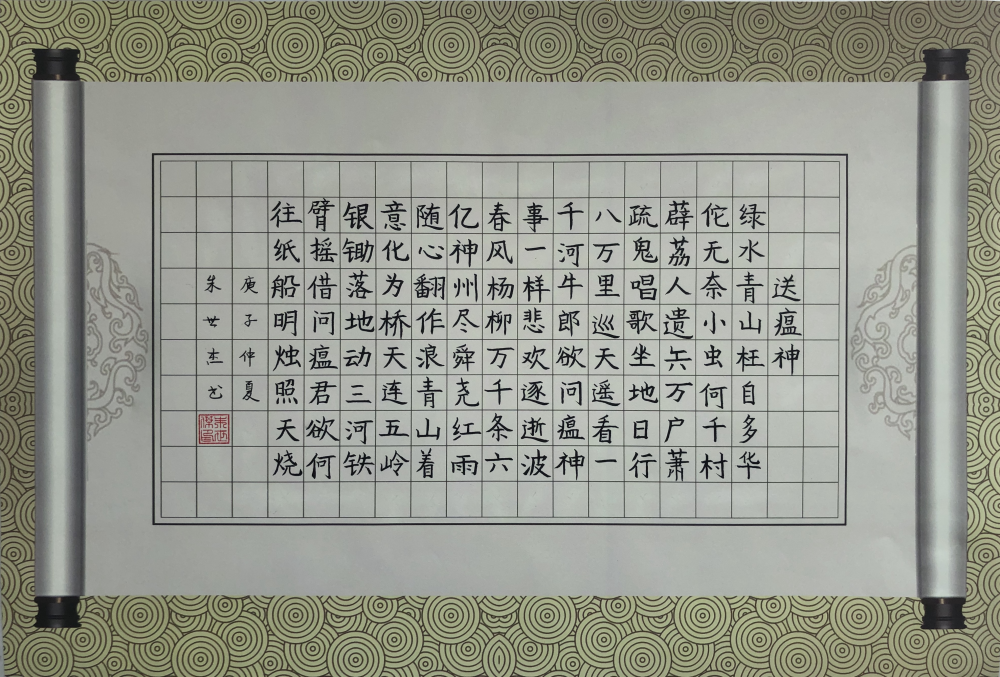 送瘟神
绿水青山枉自多华
佗无奈小虫何千村
薜荔人遗矢万户萧
疏鬼唱歌坐地日行
八万里巡天遥看一
千河牛郎欲问瘟神
事一样悲欢逐逝波
春风杨柳万千条六
亿神州尽舜尧红雨
随心翻作浪青山着
意化为桥天连五岭
银锄落地动三河铁
臂摇借问瘟君欲何
往纸船明烛照天烧
庚子仲夏
朱世杰书